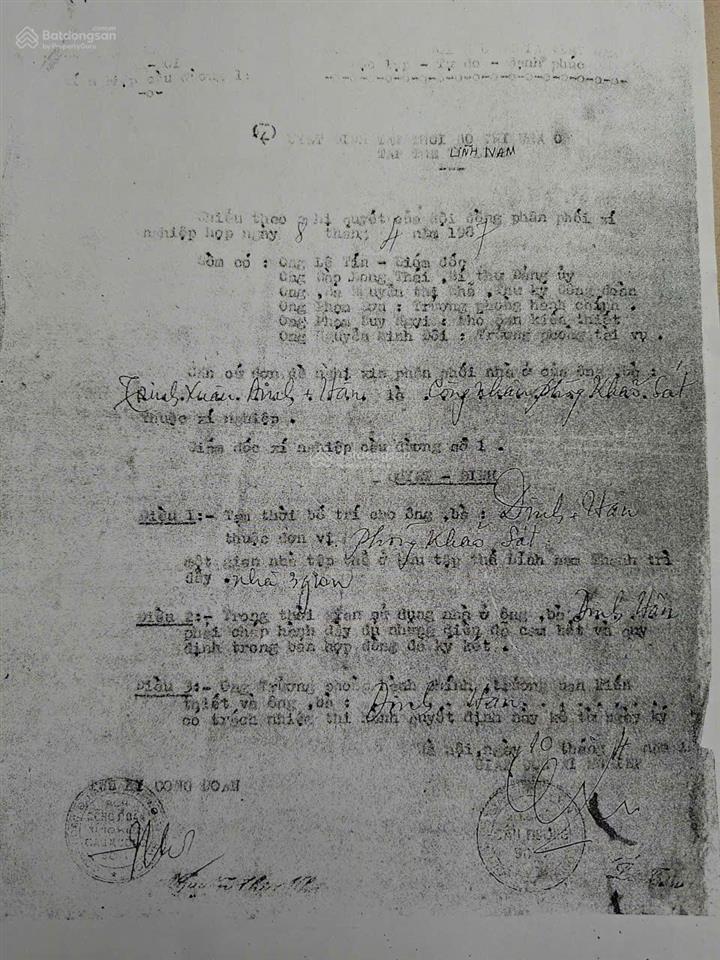 Batdongsan
by PropertyGuru
Độc lập - Tự do - Hạnh phúc
Xí nghiệp cầu đường 1:
-o-o-o-o-o-o-o-o-o-o-o-o-o-o-o-
-o-
TẠM THỜI BỐ TRÍ NHÀ Ở
TẬP THỂ LĨNH NAM
Chiếu theo nghị quyết của hội đồng phân phối xí
nghiệp họp ngày 8 tháng 4 năm 1987
Gồm có : Ông Lê Tín - Giám đốc
Ông Long Thái, Bí thư Đảng ủy
Ông, bà Nguyễn thị , Thư ký Công đoàn
Ông Phạm Lưu : Trưởng phòng hành chính .
Ông Phạm Duy : Phó ban kiến thiết
Ông Nguyễn Minh Đôi : Trưởng phòng tài vụ .
Căn cứ đơn đề nghị xin phân phối nhà ở của ông, bà :
Xuân Đinh + Hân là Công nhân phòng Khảo Sát
thuộc xí nghiệp .
Giám đốc xí nghiệp cầu đường số 1 .
QUYẾT - ĐỊNH
Điều 1:- Tạm thời bố trí cho ông, bà : Đinh + Hân
thuộc đơn vị phòng Khảo Sát
một gian nhà tập thể ở khu tập thể Lĩnh nam Thanh trì
dãy . nhà 3 gian
Điều 2:- Trong thời gian sử dụng nhà ở ông, bà Đinh Hân
phải chấp hành đầy đủ những điều đã cam kết và quy
định trong bản hợp đồng đã ký kết .
Điều 3:- Ông Trưởng phòng hành chính, trưởng ban kiến
thiết và ông, bà : Đinh + Hân
có trách nhiệm thi hành quyết định này kể từ ngày ký
Hà nội, ngày 10 tháng 4 năm 1
GIÁM ĐỐC XÍ NGHIỆP
THƯ KÝ CÔNG ĐOÀN